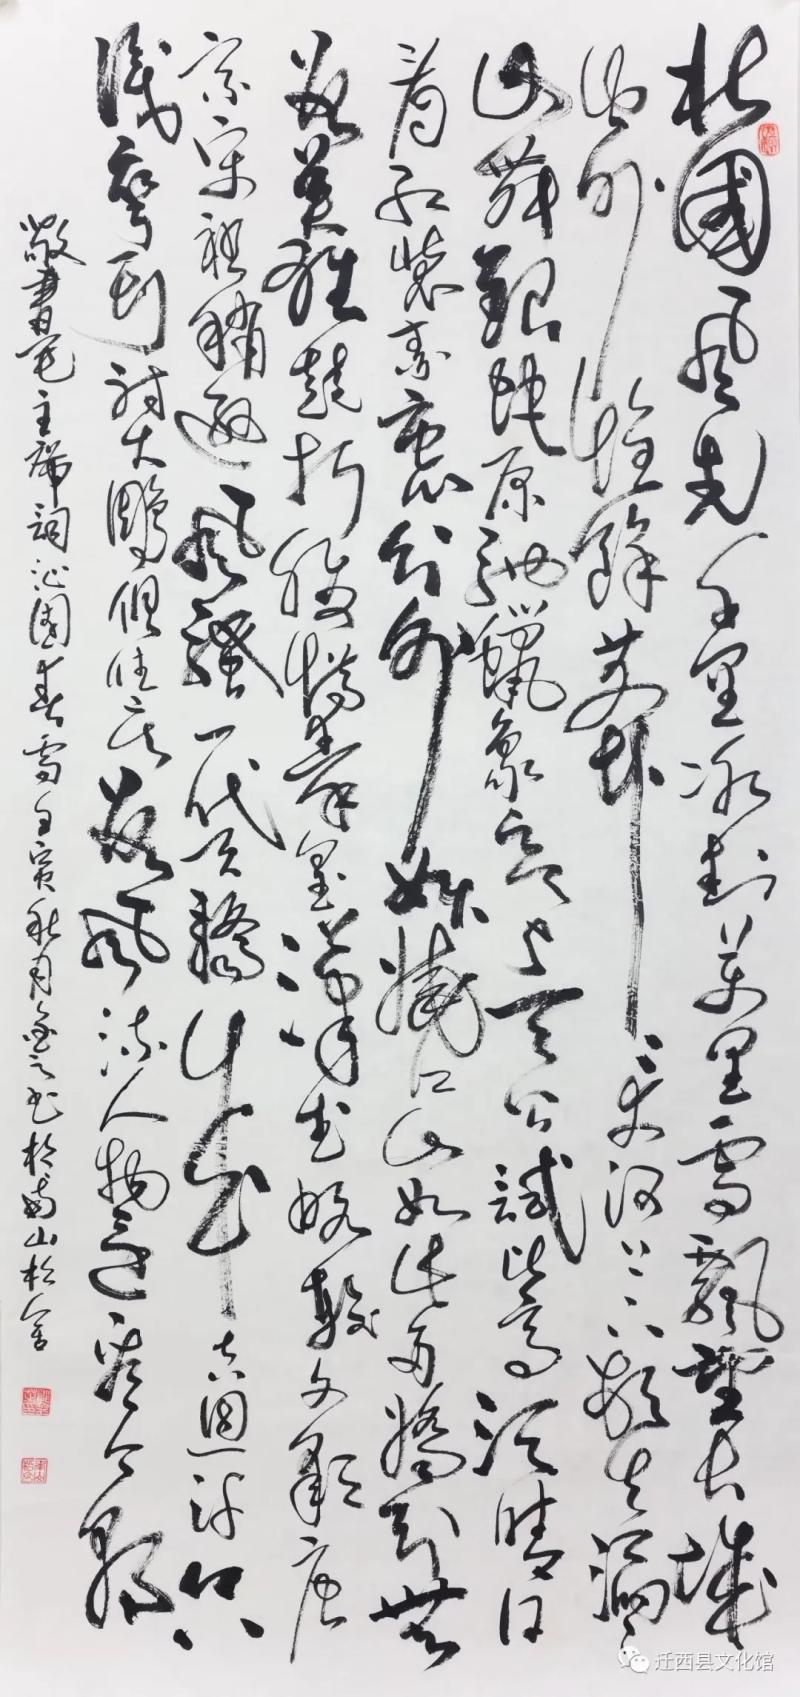 北國風光千里冰封萬里雪飄望長城
內外惟餘莽莽大河上下頓失滔滔
山舞銀蛇原馳蠟象欲與天公試比高須晴日
看紅裝素裹分外妖嬈江山如此多嬌引無
數英雄競折腰惜秦皇漢武略輸文采唐
宗宋祖稍遜風騷一代天驕成吉思汗只
識彎弓射大鵰俱往矣數風流人物還看今朝
敬書毛主席詞沁園春雪壬寅秋月書於南山松舍
迁西县文化馆